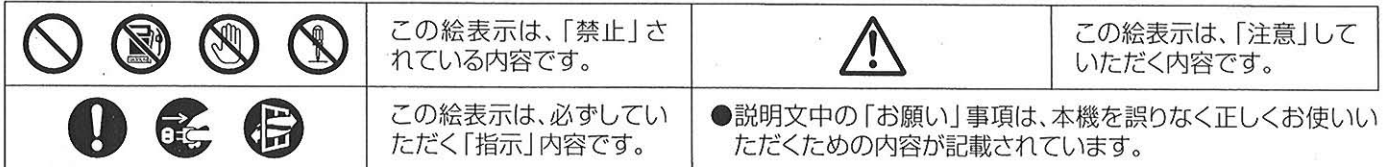 この絵表示は、「禁止」さ
れている内容です。
この絵表示は、「注意」して
いただく内容です。
この絵表示は、必ずしてい
ただく「指示」内容です。
●説明文中の「お願い」事項は、本機を誤りなく正しくお使いい
ただくための内容が記載されています。